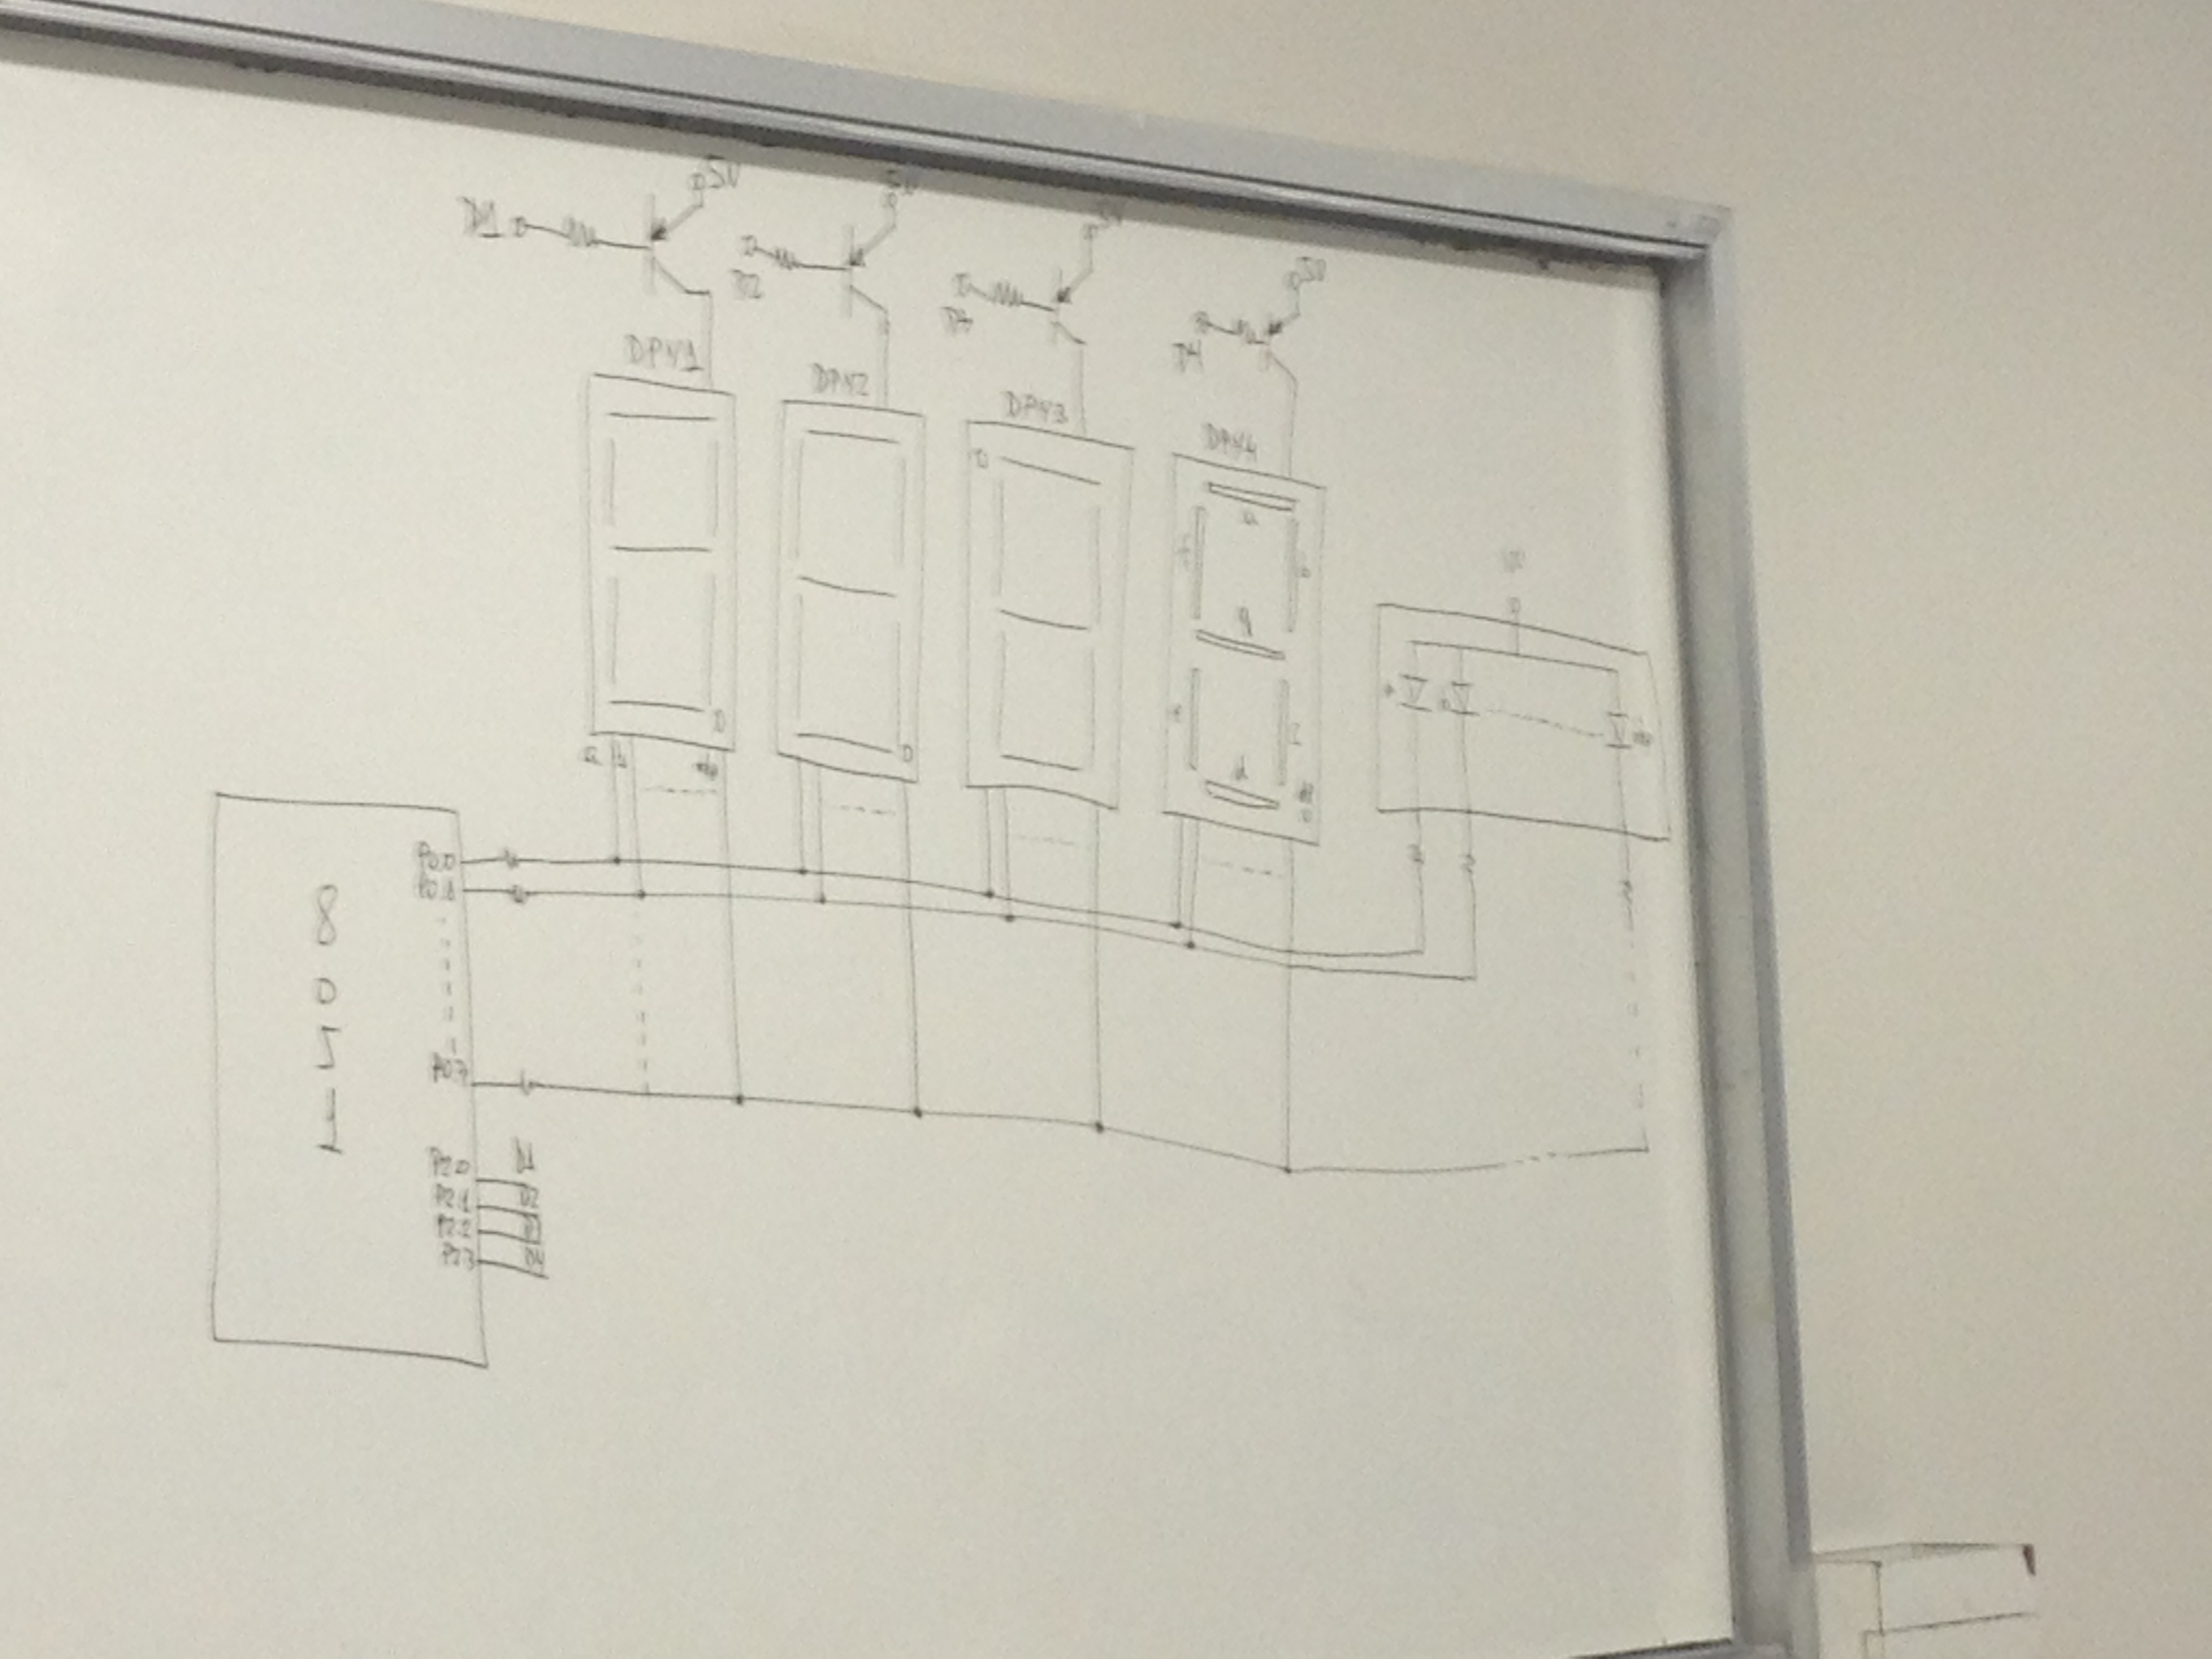 D1 5V
D2 5V
D3 5V
D4 5V
DPY1
DPY2
DPY3
DPY4
a
b
g
d
a b dp
8051
P0.0
P0.1
P0.7
P2.0 D1
P2.1 D2
P2.2 D3
P2.3 D4